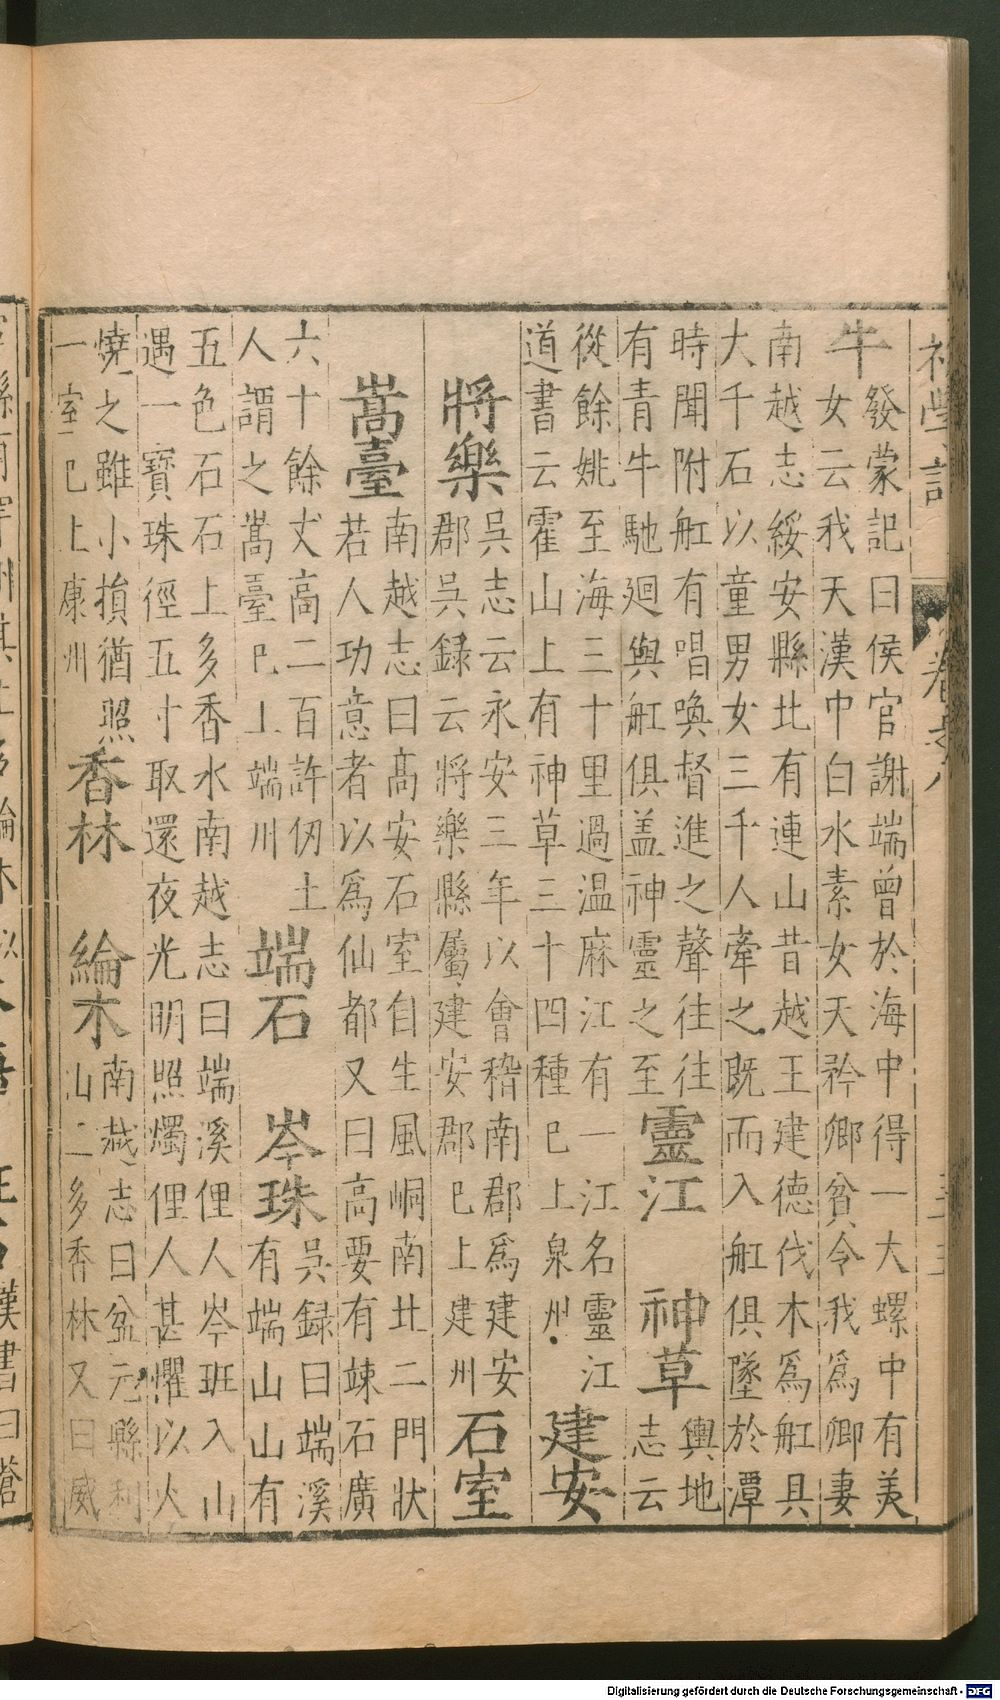 初學記 卷八
牛
發蒙記曰侯官謝端曾於海中得一大螺中有美
女云我天漢中白水素女天矜卿貧令我為卿妻
南越志綏安縣北有連山昔越王建德伐木為舡具
大千石以童男女三千人牽之既而入舡俱墜於潭
時聞附舡有唱喚督進之聲往往
有青牛馳廻與舡俱盖神靈之至
靈江 神草
輿地
志云
從餘姚至海三十里過温麻江有一江名靈江
道書云霍山上有神草三十四種巳上泉州
建安
將樂
吳志云永安三年以會稽南郡爲建安
郡吳録云將樂縣屬建安郡巳上建州
石室
嵩臺
南越志曰髙安石室自生風峒南北二門狀
若人功意者以爲仙都又曰高要有竦石廣
六十餘丈高二百許仞土
人謂之嵩臺巳上端州
端石 岑珠
吳録曰端溪
有端山山有
五色石石上多香水南越志曰端溪俚人岑班入山
遇一寳珠徑五寸取還夜光明照燭俚人甚懼以火
燒之雖小損猶照
一室巳上康州
香林 綸木
南越志曰盆元縣利
山上多香林又曰威
Digitalisierung gefördert durch die Deutsche Forschungsgemeinschaft - DFG